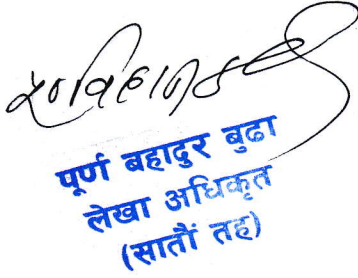 पूर्ण बहादुर बुढा
लेखा अधिकृत
(सातौं तह)